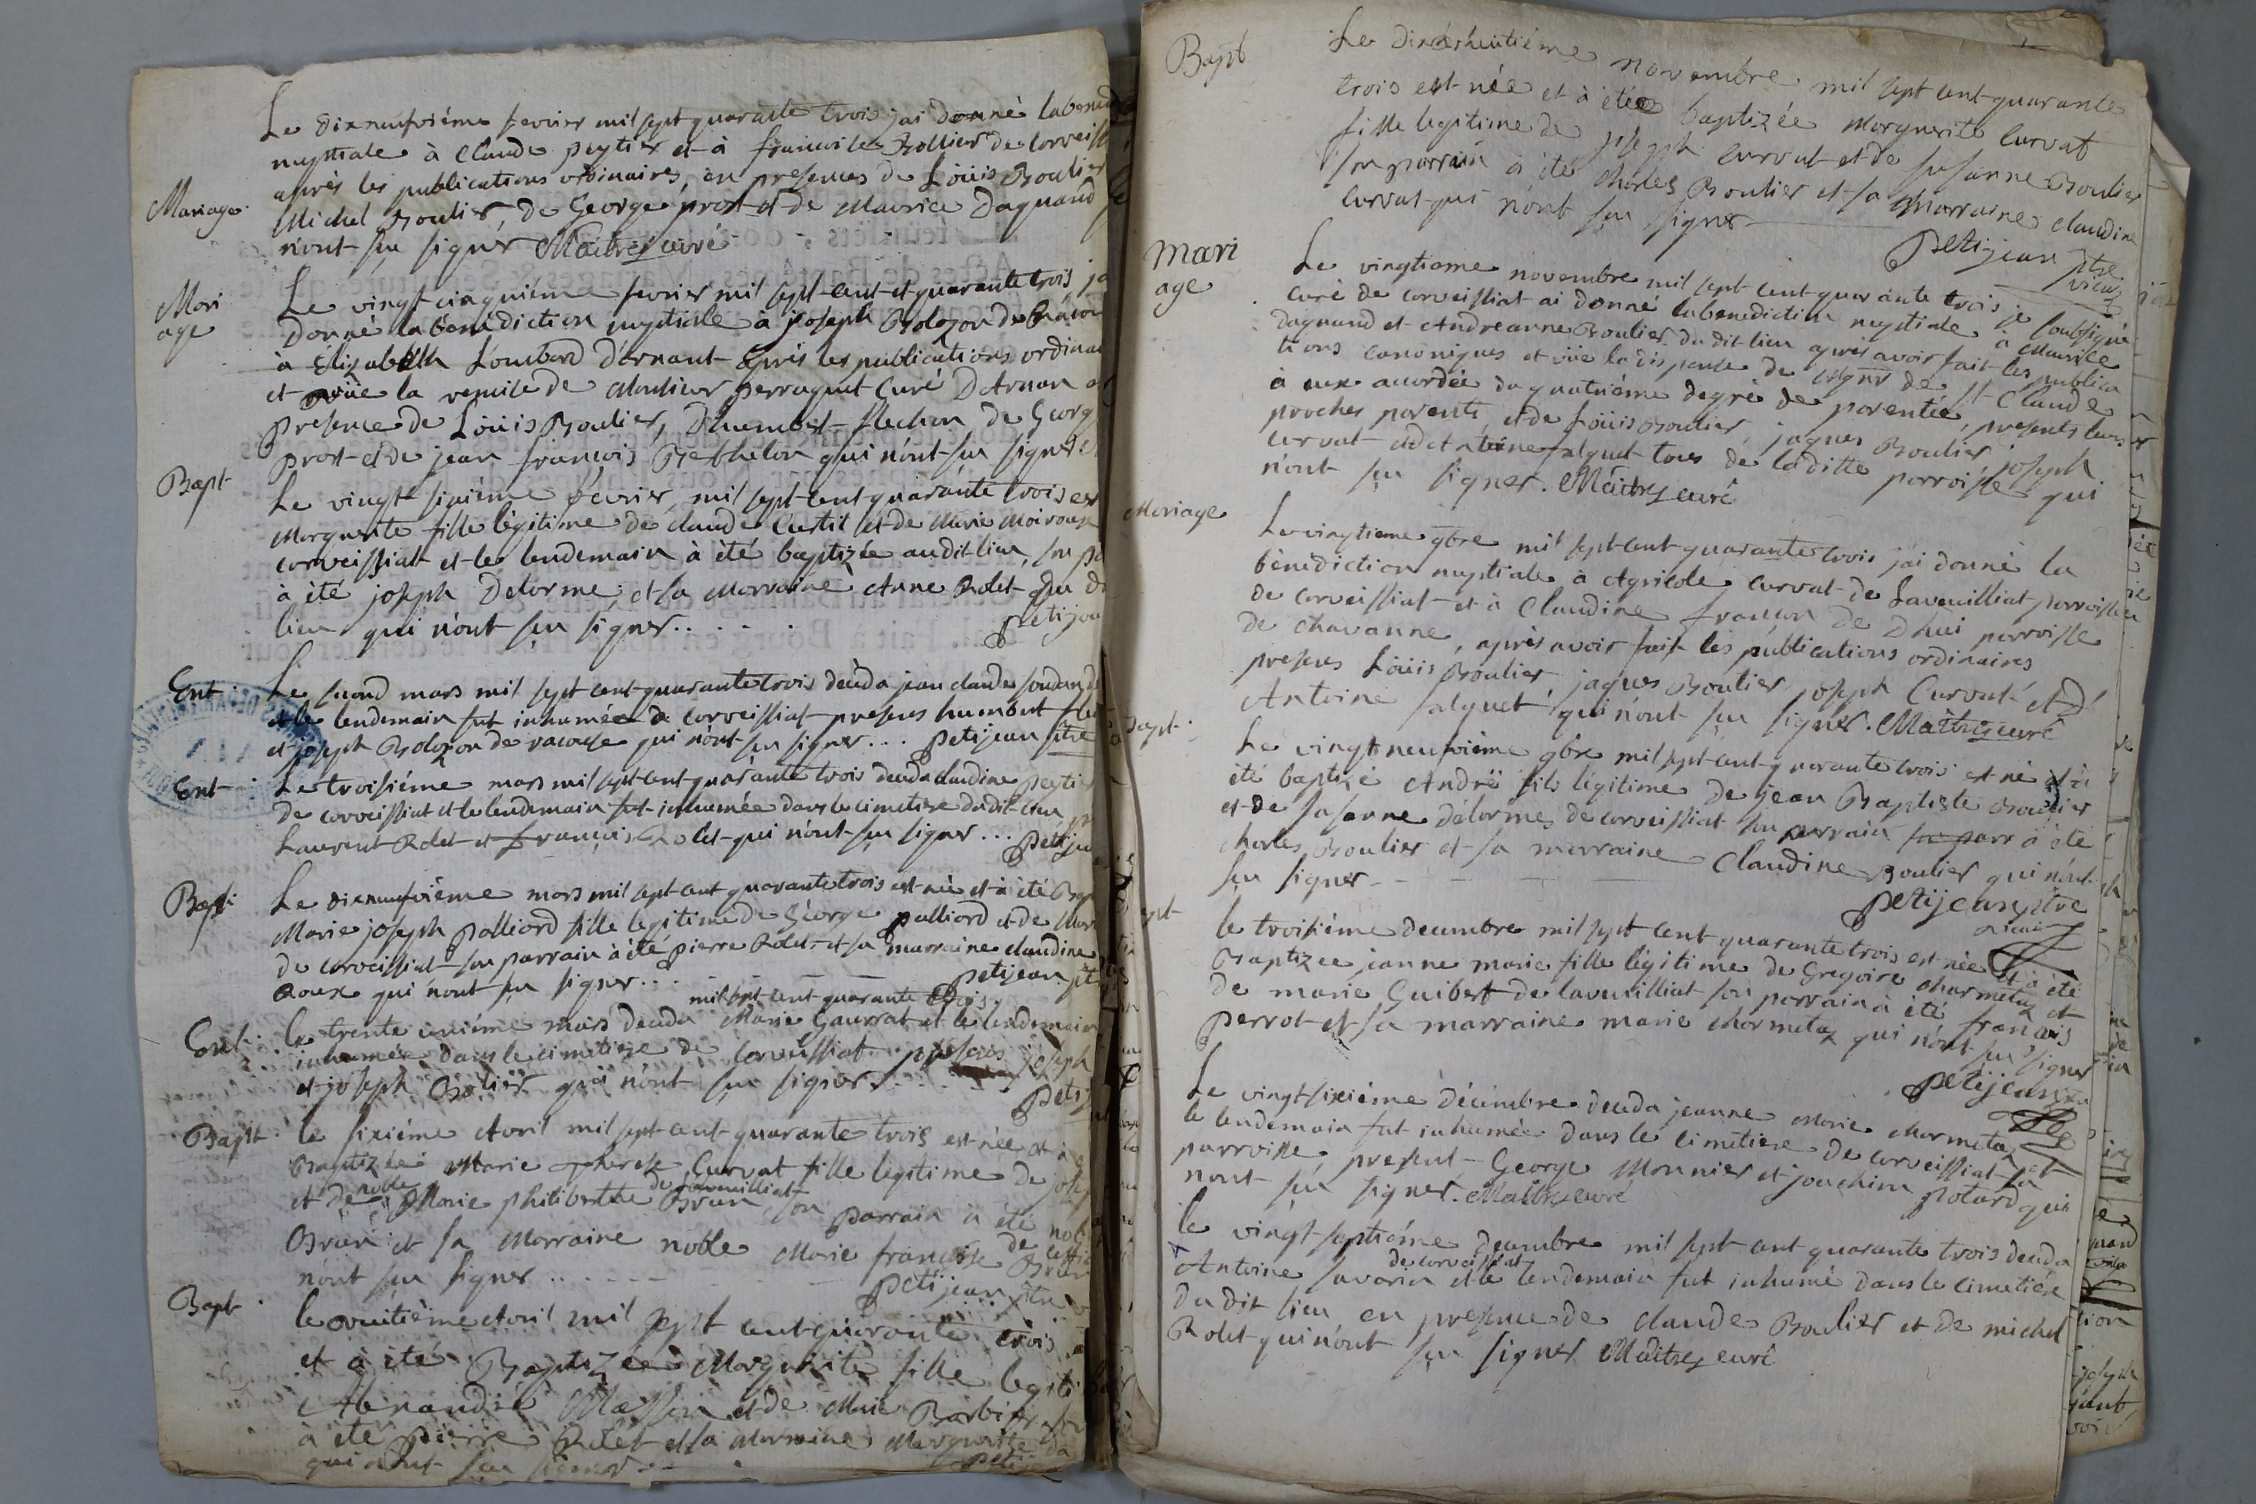 Mariage
Le dixneufvième fevrier mil sept quarante trois j'ai donné la bened
nuptiale à Claude peytier et à francoise Bollier de corveiss
après les publications ordinaires, en presences de Loüis Boulier
Michel Boulier, de George prost et de Maurice Daguand
n'ont sçu signer Maitre curé
Mari
age
Le vingt cinquième fevrier mil sept cent et quarante trois, j'a
Donné la bénédiction nuptiale à joseph Bolozon de
à Elizabeth Lombard d'arnant après les publications ordinai
et vüe la remise de Monsieur perraquet Curé D'Arnan
presence de Loüis Boulier, d'humbert flechon, de Georg
prost et de jean françois Berthelon qui n'ont sçu signer
Bapt
Le vingt sixième fevrier, mil sept cent quarante trois est
Marguerite fille légitime de claude Curtil et de Marie Moiroux
corveissiat et le lendemain à été baptizée au dit lieu, son pa
à été joseph Delorme, et sa Marraine Anne Rolet du d
lieu qui n'ont sçu signer.. . . . petijea
Ent
Le second mars mil sept cent quarante trois deceda jean claude
et le lendemain fut inhumé de corveissiat presens
et joseph Bolozon de racouse qui n'ont sçu signer... petijean ptre
Ent
Le troisième mars mil sept cent quarante trois deceda claudine peytier
de corveissiat et le lendemain fut inhumée dans le cimetiere du dit lieu
Laurent Rolet et François Rolet qui n'ont sçu signer... petijea
Bapt
Le dixneufvième mars mil sept cent quarante trois est née et à été Bap
Marie joseph palliard fille legitime de George palliard et de Mar
de corveissiat son parrain à été pierre Rolet et sa marraine claudine
Roux qui n'ont sçu signer... petijean pt
mil sept cent quarante trois
Ent.
Le trente mars deceda Marie Gaurrat et le lendemain
inhumée dans le cimetiere de Corveissiat presens joseph
et joseph Bolier qui n'ont sçu signer.... petij
Bapt
Le sixième Avril mil sept cent quarante trois est née et à
Baptizée Marie Therese Curvat fille legitime de jose
de laveuilliat
et de noble Marie philiberthe Brun, son parrain à été nob
Brun et sa Marraine noble Marie francoise de
n'ont sçu signer .. petijean ptre
Bapt
le Avril mil sept cent quarante trois
et à été Baptizée Marguerite fille legiti
et de Marie Barbier
à été pierre Rolet et sa Marraine Marguerite
qui n'ont sçu signer petij
Bapt
Le dix huitième novembre mil sept cent quarante
trois est née et à étée baptizée Marguerite Curvat
fille legitime de joseph Curvat et de susanne Boulier
son parrain à été charles Boulier et sa Marraine claudine
Curvat qui n'ont sçu signer
petijean ptre
vicair
Mari
age
Le vingtieme novembre mil sept cent quarante trois je soussigné
Curé de corveissiat ai donné la benediction nuptiale à Maurice
Daguand et Andreanne Boulier du dit lieu après avoir fait les publica
tions canoniques et vüe la dispense de Mgnr de St Claude
à eux acordée du quatrième degré de parentée, presents leurs
proches parents, et de Loüis Boulier, jaques Boulier joseph
curvat et d'Antoine falquet tous de la ditte parroisse qui
n'ont sçu signer. Maitre curé
Mariage
Le vingtieme 9bre mil sept cent quarante trois j'ai donné la
bénédiction nuptiale à Agricole curvat de Laveuilliat parroisse
de corveissiat et à Claudine françon de Dhui parroisse
de chavanne, après avoir fait les publications ordinaires
presens Loüis Boulier jaques Boulier joseph Curvat et d'
Antoine falquet qui n'ont sçu signer. Maitre curé
Bapt
Le vingt neufvième 9bre mil sept cent quarante trois est né et à
été baptizé André fils légitime de jean Baptiste Boulier
et de susanne delorme de corveissiat son parrain son parr à été
charles Boulier et sa marraine Claudine Boulier qui n'ont
sçu signer
petijean ptre
vicair
le troisième decembre mil sept cent quarante trois est née et à été
Baptizée jeanne marie fille légitime de Gregoire charmetaz et
de marie Guibert de laveuilliat son parrain à été françois
perrot et sa marraine marie charmetaz qui n'ont sçu signer
petijean ptre
Le vingt sixième décembre deceda jeanne Marie charmetaz et
le lendemain fut inhumée dans le cimetiere de corveissiat sa
parroisse, present George Monnier et joachim potard qui
n'ont sçu signer. Maitre curé
le vingt septième decembre mil sept cent quarante trois deceda
de corveissiat
Antoine savarin et le lendemain fut inhumé dans le cimetière
du dit lieu en presence de claude Boulier et de michel
Rolet qui n'ont sçu signer Maitre curé